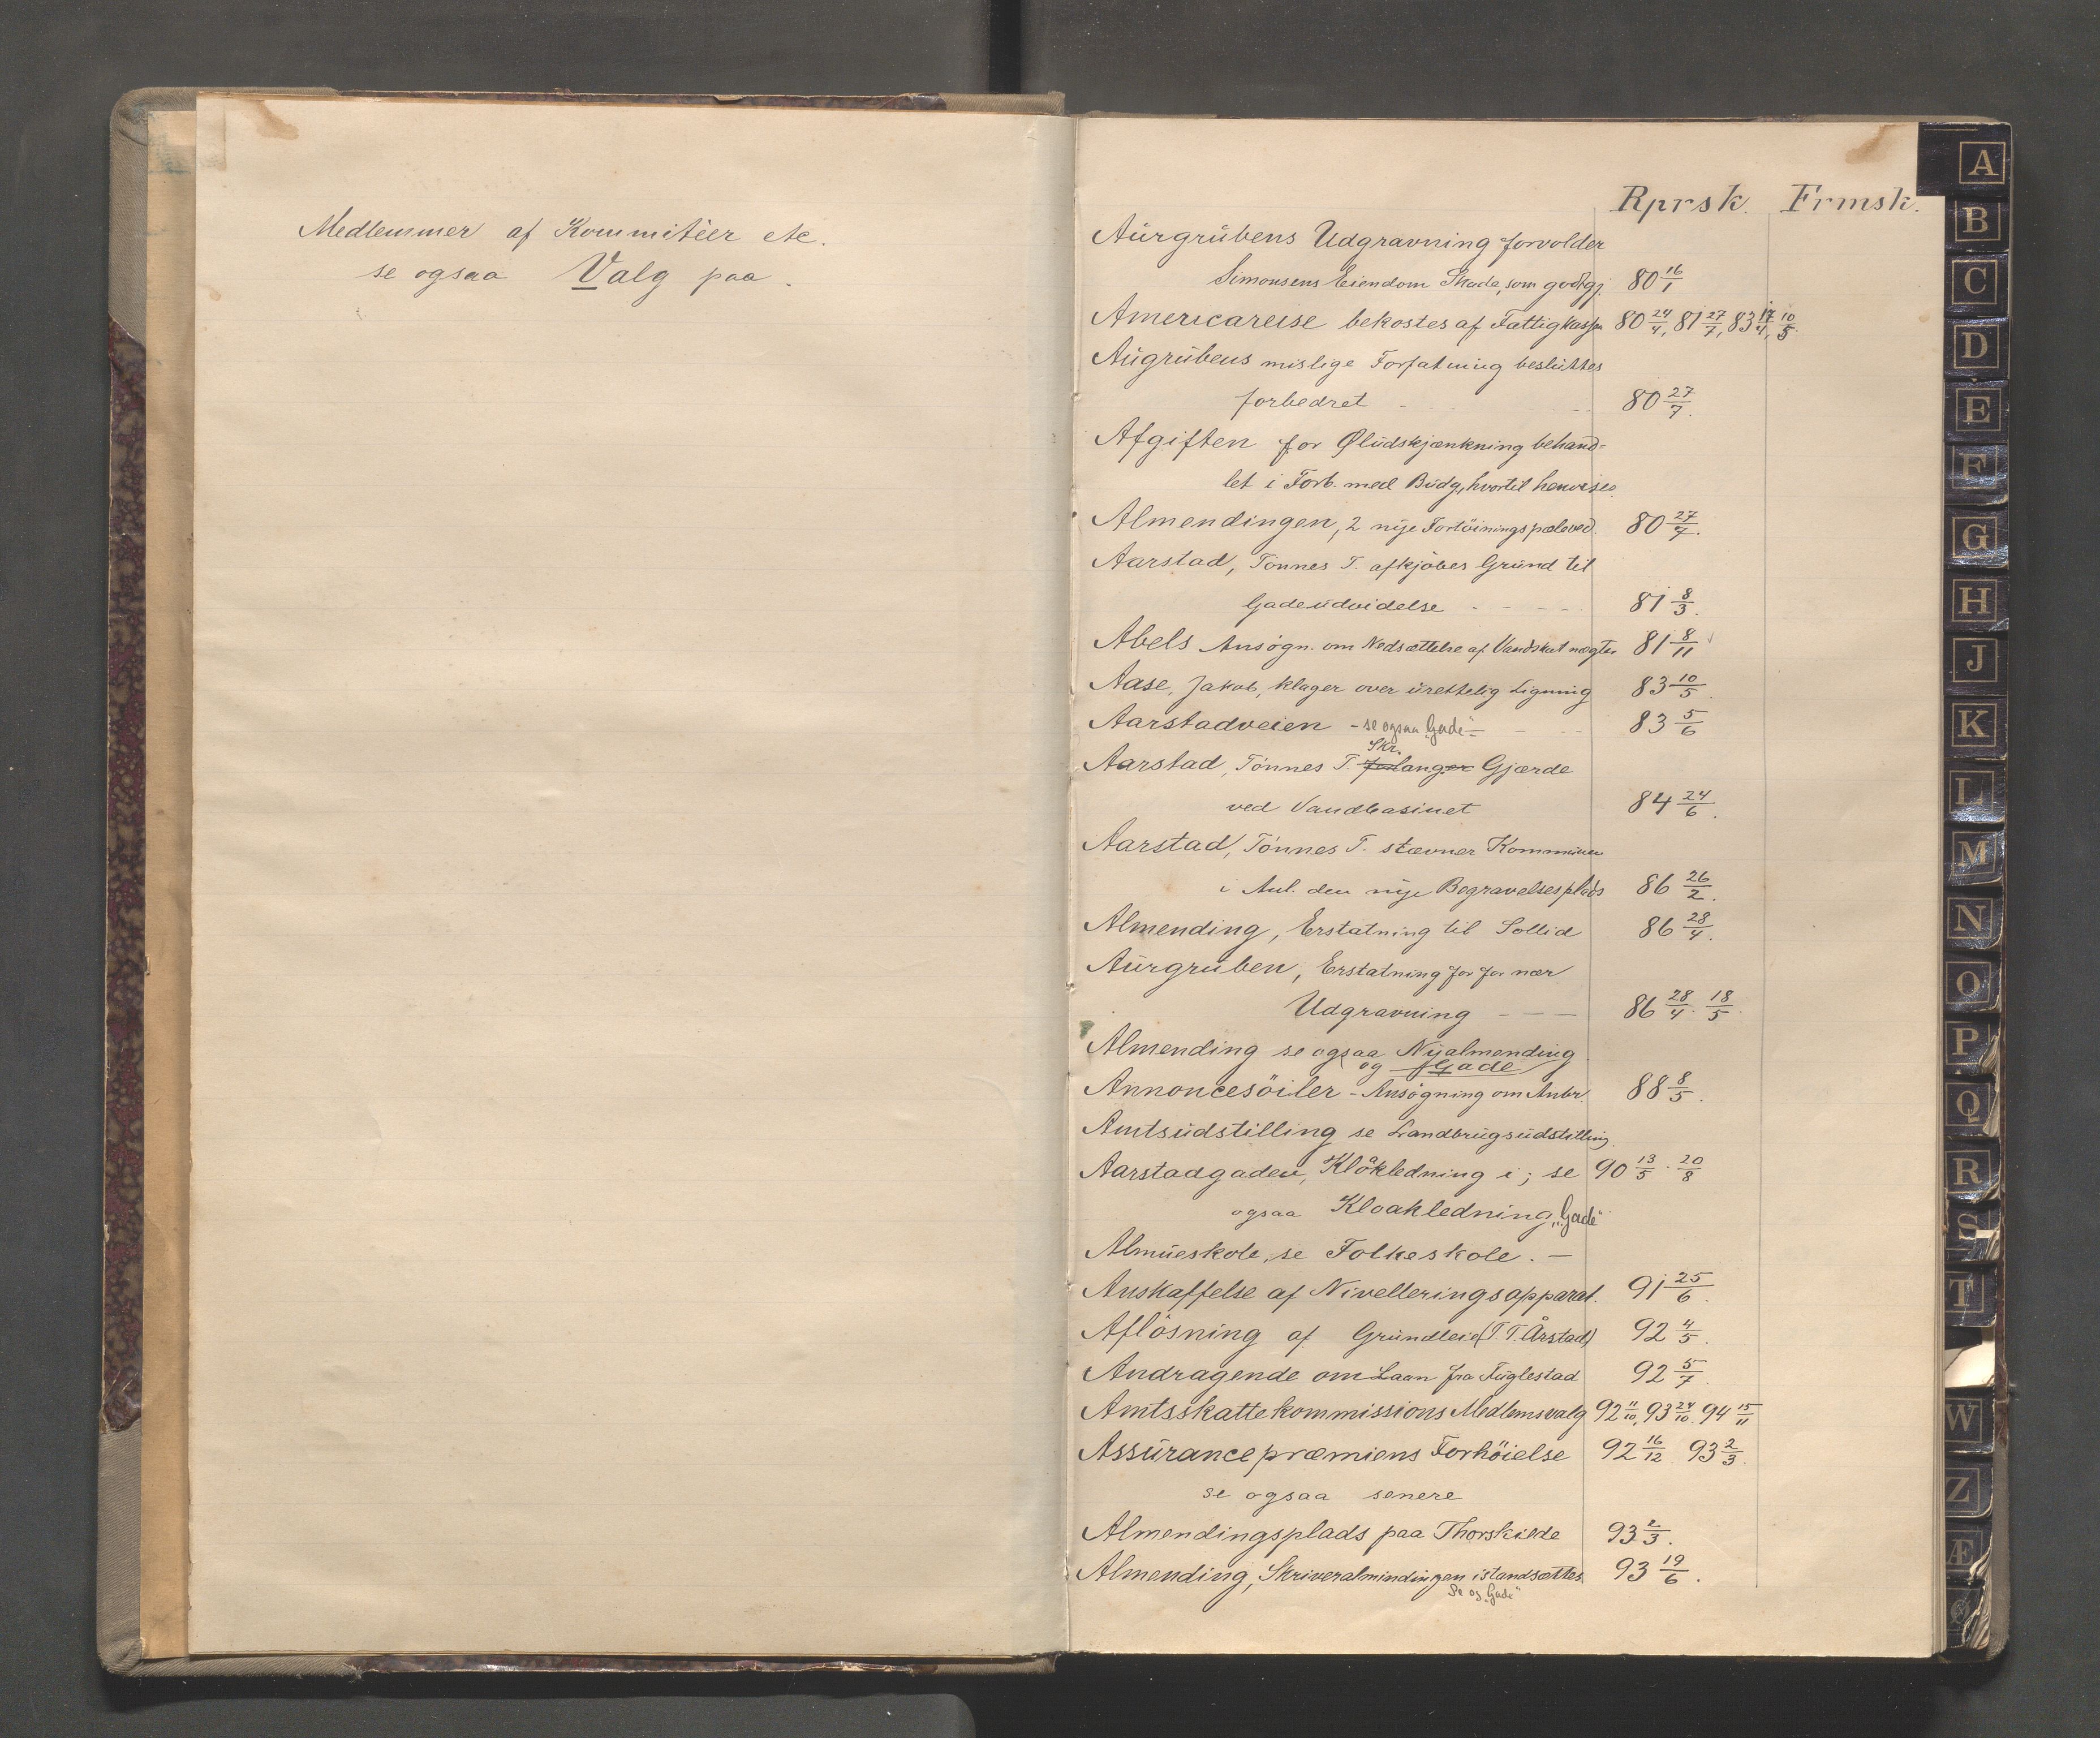 Medlemmer af Kommitéer etc.
se ogsaa Valg paa.
Rprsk. Frmsk.
Aurgrubens Udgravning forvolder
Simonsens Eiendom Skade, som godtgj. 80 16/1
Americareise bekostes af Fattigkassen 80 24/4, 81 27/7, 83 17/4, 10/5.
Augrubens mislige Forfatning besluttes
forbedret - - 80 27/7.
Afgiften for Øludskjænkning behand-
let i Forb. med Budg, hvortil henvises.
Almendingen, 2 nye Fortöiningspæle ved. 80 27/7.
Aarstad, Tönnes T. afkjöbes Grund til
Gadeudvidelse - - - - 81 8/3.
Abels Ansøgn. om Nedsættelse af Vandskat nægtes 81 8/11
Aase, Jakob, klager over urettelig Ligning 83 10/5.
Aarstadveien - se ogsaa „Gade" - - - 83 5/6
Skr.
Aarstad, Tönnes T. forlanger Gjærde
ved Vandbasinet 84 24/6.
Aarstad, Tönnes T. stævner Kommunen
i Anl. den nye Begravelsesplads 86 26/2.
Almending, Erstatning til Sollid 86 28/4.
Aurgruben, Erstatning for for nær
Udgravning - - - 86 28/4. 18/5.
Almending se ogsaa Nyalmending
og Gade
Annoncesöiler - Ansøgning om Anbr. 88 8/5.
Amtsudstilling se Landbrugsudstilling.
Aarstadgaden, Kloakledning i; se 90 13/5. 20/8
ogsaa Kloakledning, „Gade"
Almueskole, se Folkeskole. -
Anskaffelse af Nivelleringsapparat. 91 25/6.
Aflösning af Grundleie (T. T. Årstad) 92 4/5.
Andragende om Laan fra Fuglestad 92 5/7.
Amtsskattekommissions Medlemsvalg 92 11/10, 93 24/10. 94 15/11
Assurancepræmiens Forhöielse 92 16/12 93 2/3.
se ogsaa senere
Almendingsplads paa Thorskilde 93 2/3.
Almending, Skriveralmindingen istandsættes 93 19/6.
Se og „Gade"
A
B
C
D
E
F
G
H
J
K
L
M
N
O
P
Q
R
S
T
W
Z
Æ
Ø